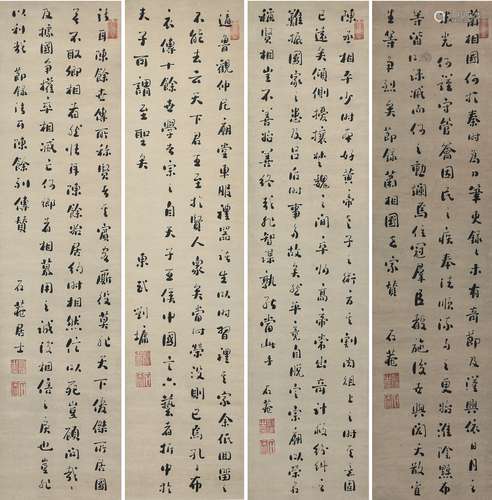 蕭相國何於秦時為刀筆吏未有奇節及漢興依日月之末
光何謹守管籥因民之疾奉法順流與之更始淮陰黥布
等皆以誅滅而何之勳爛焉位冠羣臣聲施後世與閎夭散宜
生等爭烈矣節錄蕭相國世家贊 石菴
陳丞相平少時本好黃帝老子之術方其割肉俎上之時意固
已遠矣傾側擾攘楚魏之間卒歸高帝常出奇計救紛糾之
難振國家之患及呂后時事多故矣然平竟自脫定宗廟以榮名
稱賢相豈不善始善終哉非智謀孰能當此乎 石菴
適魯觀仲尼廟堂車服禮器諸生以時習禮其家余低回留之
不能去云天下君王至於賢人衆矣當時榮沒則已焉孔子布
衣傳十餘世學者宗之自天子王侯中國言六藝者折中於
夫子可謂至聖矣 東武劉墉
張耳陳餘世傳所稱賢者其賓客廝役莫非天下俊傑所居國
無不取卿相者然張耳陳餘始居約時相然信以死豈顧問哉
及據國爭權卒相滅亡何鄉者相慕用之誠後相倍之戾也豈非
以利哉 節錄張耳陳餘列傳贊 石菴居士